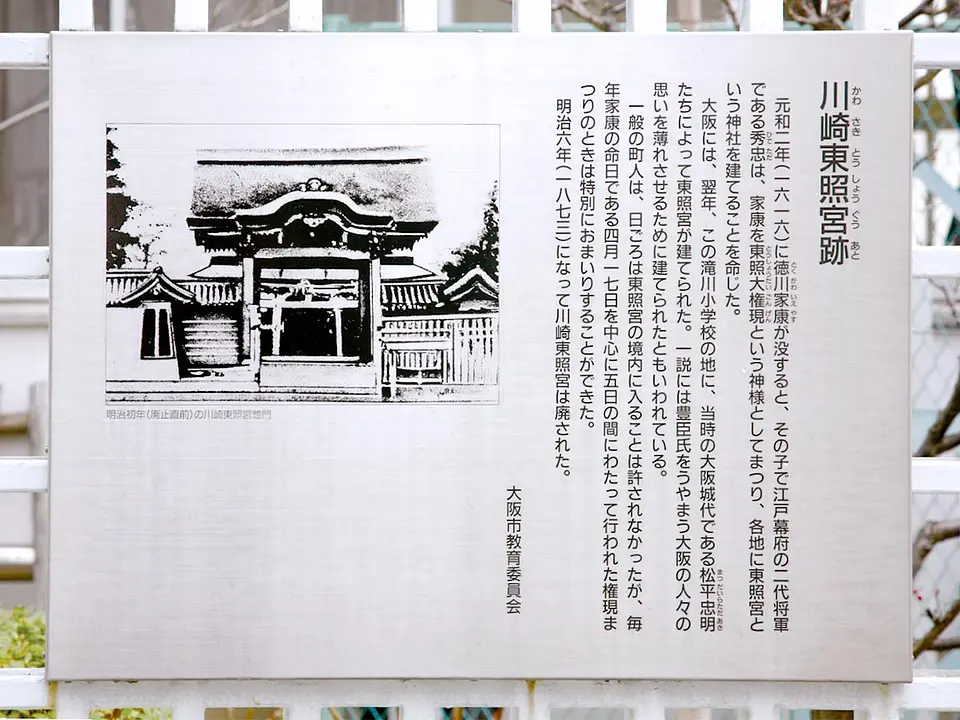 川崎東照宮跡
かわ さき とう しょう ぐう あと
元和二年(一六一六)に徳川家康が没すると、その子で江戸幕府の二代将軍
とくがわいえやす
である秀忠は、家康を東照大権現という神様としてまつり、各地に東照宮と
ひでただ
とうしょうだいごんげん
いう神社を建てることを命じた。
大阪には、翌年、この滝川小学校の地に、当時の大阪城代である松平忠明
まつだいらただあき
たちによって東照宮が建てられた。一説には豊臣氏をうやまう大阪の人々の
思いを薄れさせるために建てられたともいわれている。
一般の町人は、日ごろは東照宮の境内に入ることは許されなかったが、毎
年家康の命日である四月一七日を中心に五日の間にわたって行われた権現ま
つりのときは特別におまいりすることができた。
明治六年(一八七三)になって川崎東照宮は廃された。
大阪市教育委員会
明治初年(廃止直前)の川崎東照宮惣門